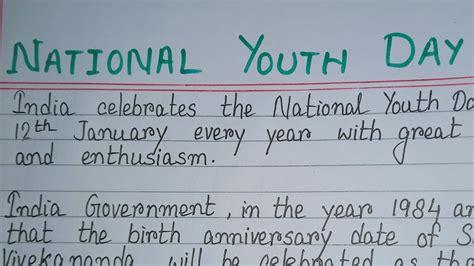 NATIONAL YOUTH DAY
India celebrates the National Youth
12th January every year with great
and enthusiasm.
India Government, in the year 1984
that the birth anniversary date of
Vivekananda will be celebrated as